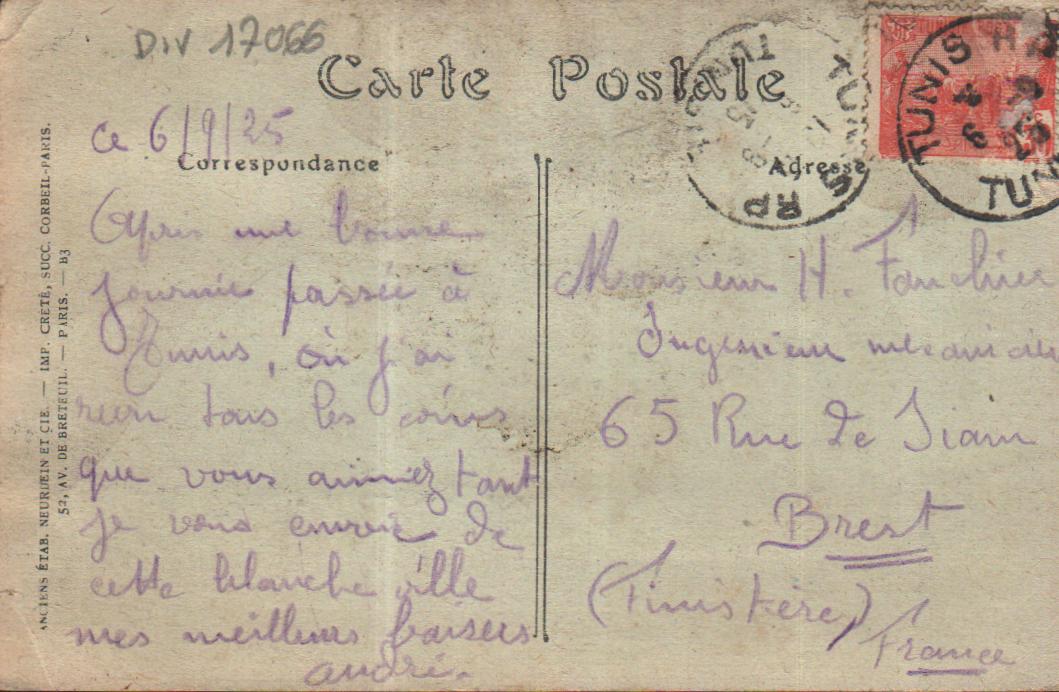 DIV 17066
Carte Postale
ce 6/9/25
Correspondance
Adresse
TUNIS RP
TUNIS
TUNIS
Après une bonne
journée passée à
Tunis, où j'ai
revu tous les coins
que vous aimiez tant
je vous envoie de
cette blanche ville
mes meilleurs baisers
andré.
Monsieur H. Fauchier
Ingenieur mecanicien
65 Rue de Siam
Brest
(Finistère)
France
ANCIENS ÉTAB. NEURDEIN ET CIE. — IMP. CRÉTÉ, SUCC. CORBEIL-PARIS.
52, AV. DE BRETEUIL. — PARIS. — B3